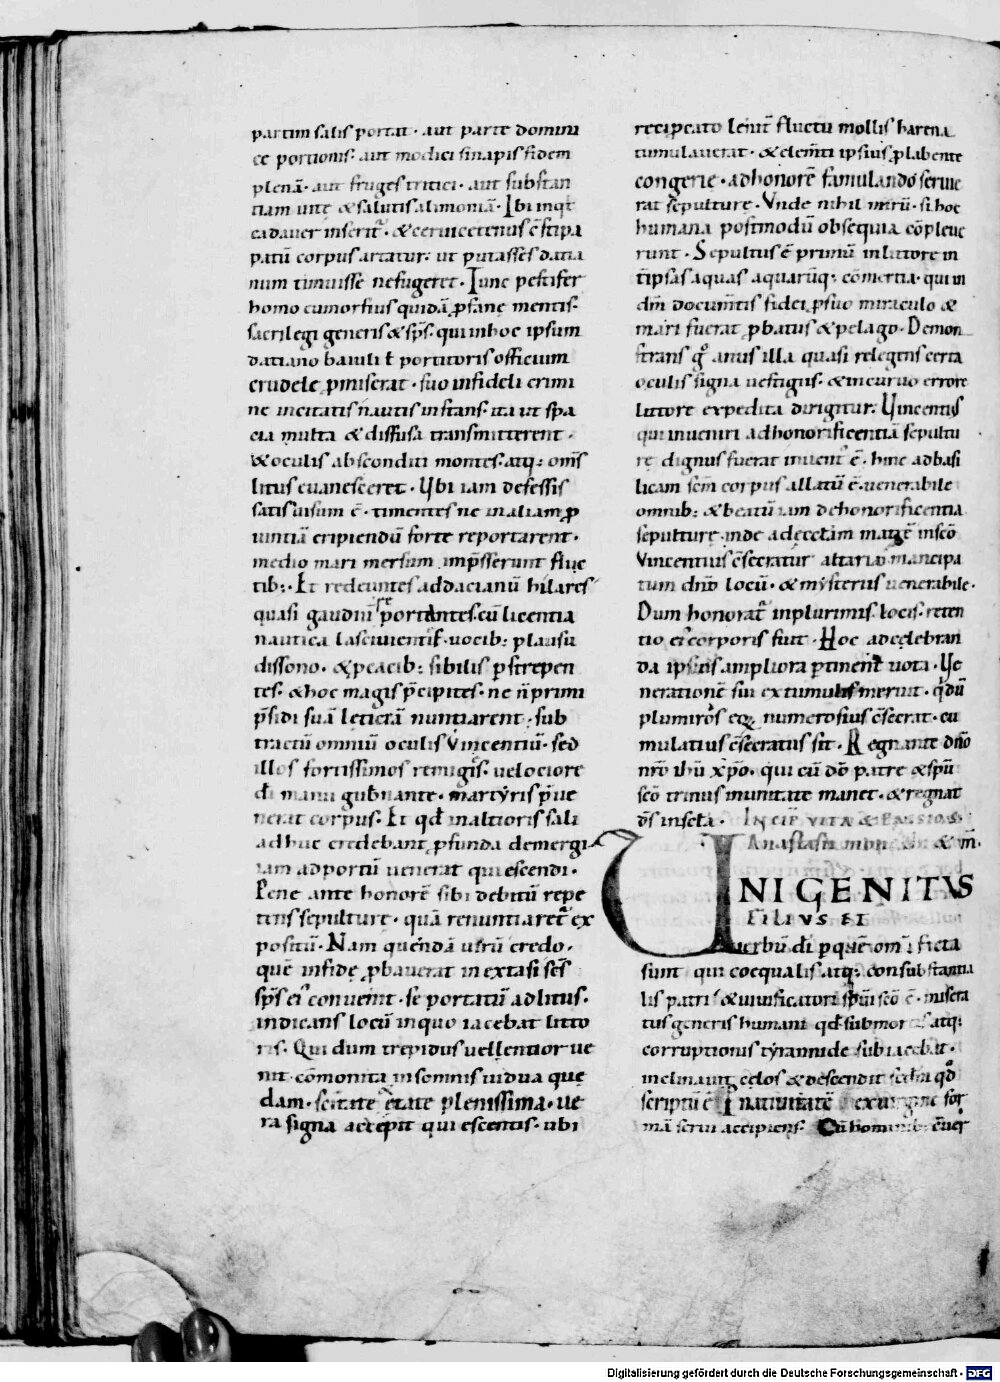 partim salis portat · aut parte domini
ce portionis· aut modici sinapis fidem
plenā· aut fruges tritici · aut substan
tiam uite & salutis alimoniā· Ibi inqt
cadauer inserit᷑ · & ceruice tenus c̄stipa
patū corpus artatur· ut putasses datia
num timuisse ne fugeret · Tunc pestifer
homo eumorfius quidā ꝓfane mentis·
sacrilegi generis & sp̄s· qui in hoc ipsum
datiano baiuli ł portitoris officium
crudele ꝓmiserat · suo infideli crimi
ne incitatis nautis instans· ita ut spa
cia multa & diffusa transmitterent ·
& oculis absconditi montes· atq: om̄s
litus euanesceret · Ubi iam defessis
satis uisum ē · timentes ne in aliam ꝓ
uintiā eripiendū forte reportarent ·
medio mari mersum imp̄sserunt fluc
tib:· Et redeuntes ad dacianū hilares
quasi gaudiū se portantes· cū licentia
nautica lasciuientes· uocib: plausu
dissono · & peacib: sibilis ꝑstrepen
tes· & hoc magis p̄cipites· ne n̄ primi
p̄sidi suā letitiā nuntiarent · sub
tractū omniū oculis Vincentiū· sed
illos fortissimos remigis· uelociore
di manu gub̄nante · martyris p̄ue
nerat corpus· Et qd in altioris sali
adhuc credebant ꝓfunda demergi
iam ad portū uenerat quiescendi·
Pene ante honorē sibi debitū repe
tens sepulture · quā renuntiaret᷑ ex
positū· Nam quendā uirū credo·
quē in fide ꝓbauerat in extasi scs̄
sp̄s ei conuenit · se portatū ad litus·
indicans locū in quo iacebat litto
ris· Qui dum trepidus uel lentior ue
nit · cōmonita in somnis uidua que
dam· sc̄itate etate plenissima· ue
ra signa accepit quiescentis· ubi
reciꝓcato lenit᷑ fluctu mollis harena
tumulauerat · & elem̄ti ipsius ꝓlabente
congerie · ad honorē famulando seruie
rat sepulture · Unde nihil mirū· si hoc
humana postmodū obsequia cōpleue
runt · Sepultus ē primū in littore in
t̄ ipsas aquas aquarūq: cōmertia · qui in
dm̄ docum̄tis fidei ꝓ suo miraculo &
mari fuerat ꝓbatus & pelago· Demon
strans gͦ anus illa quasi relegens certa
oculis signa uestigiis· & incuruo errore
littore expedita dirigitur· Vincentius
qui inueniri ad honorificentiā sepultu
re dignus fuerat inuent᷑ ē · hinc ad basi
licam sc̄m corpus allatū ē · uenerabile
omnib: & beatū iam de honorificentia
sepulture inde ad ecclam in sc̄o
Vincentius c̄secratur altario mancipa
tum dn̄o locū · & mysteriis uenerabile·
Dum honorat᷑ in plurimis locis· reten
tio ei corporis fuit · Hoc ad celebran
da ipsius ampliora ꝑtinent uota · Ue
nerationē sui ex tumulis meruit · qdū
plumiros eq; numerosius c̄secrat · cu
mulatius c̄secratus sit · Regnante dn̄o
nr̄o ih̄u xp̄o· qui cū dō patre & sp̄u
sc̄o trinus in unitate manet · & regnat
ds̄ in scla · INCIP̄ VITA & PASSIO S
Anastasii mon & m̄·
UNIGENITUS
FILIUS ET
uerbū di ꝑ quē om̄i ficta
sunt qui coequalis· atq: consubstantia
lis patri & uiuificatori sp̄ui sc̄o ē · misera
tus generis humani qd sub morte atq:
corruptionis tyrannide subiacebat ·
inclinauit celos & descendit sicut
scriptū ē In natiuitatē ex uirgine for
mā serui accipiens· Cū hominib: c̄uer